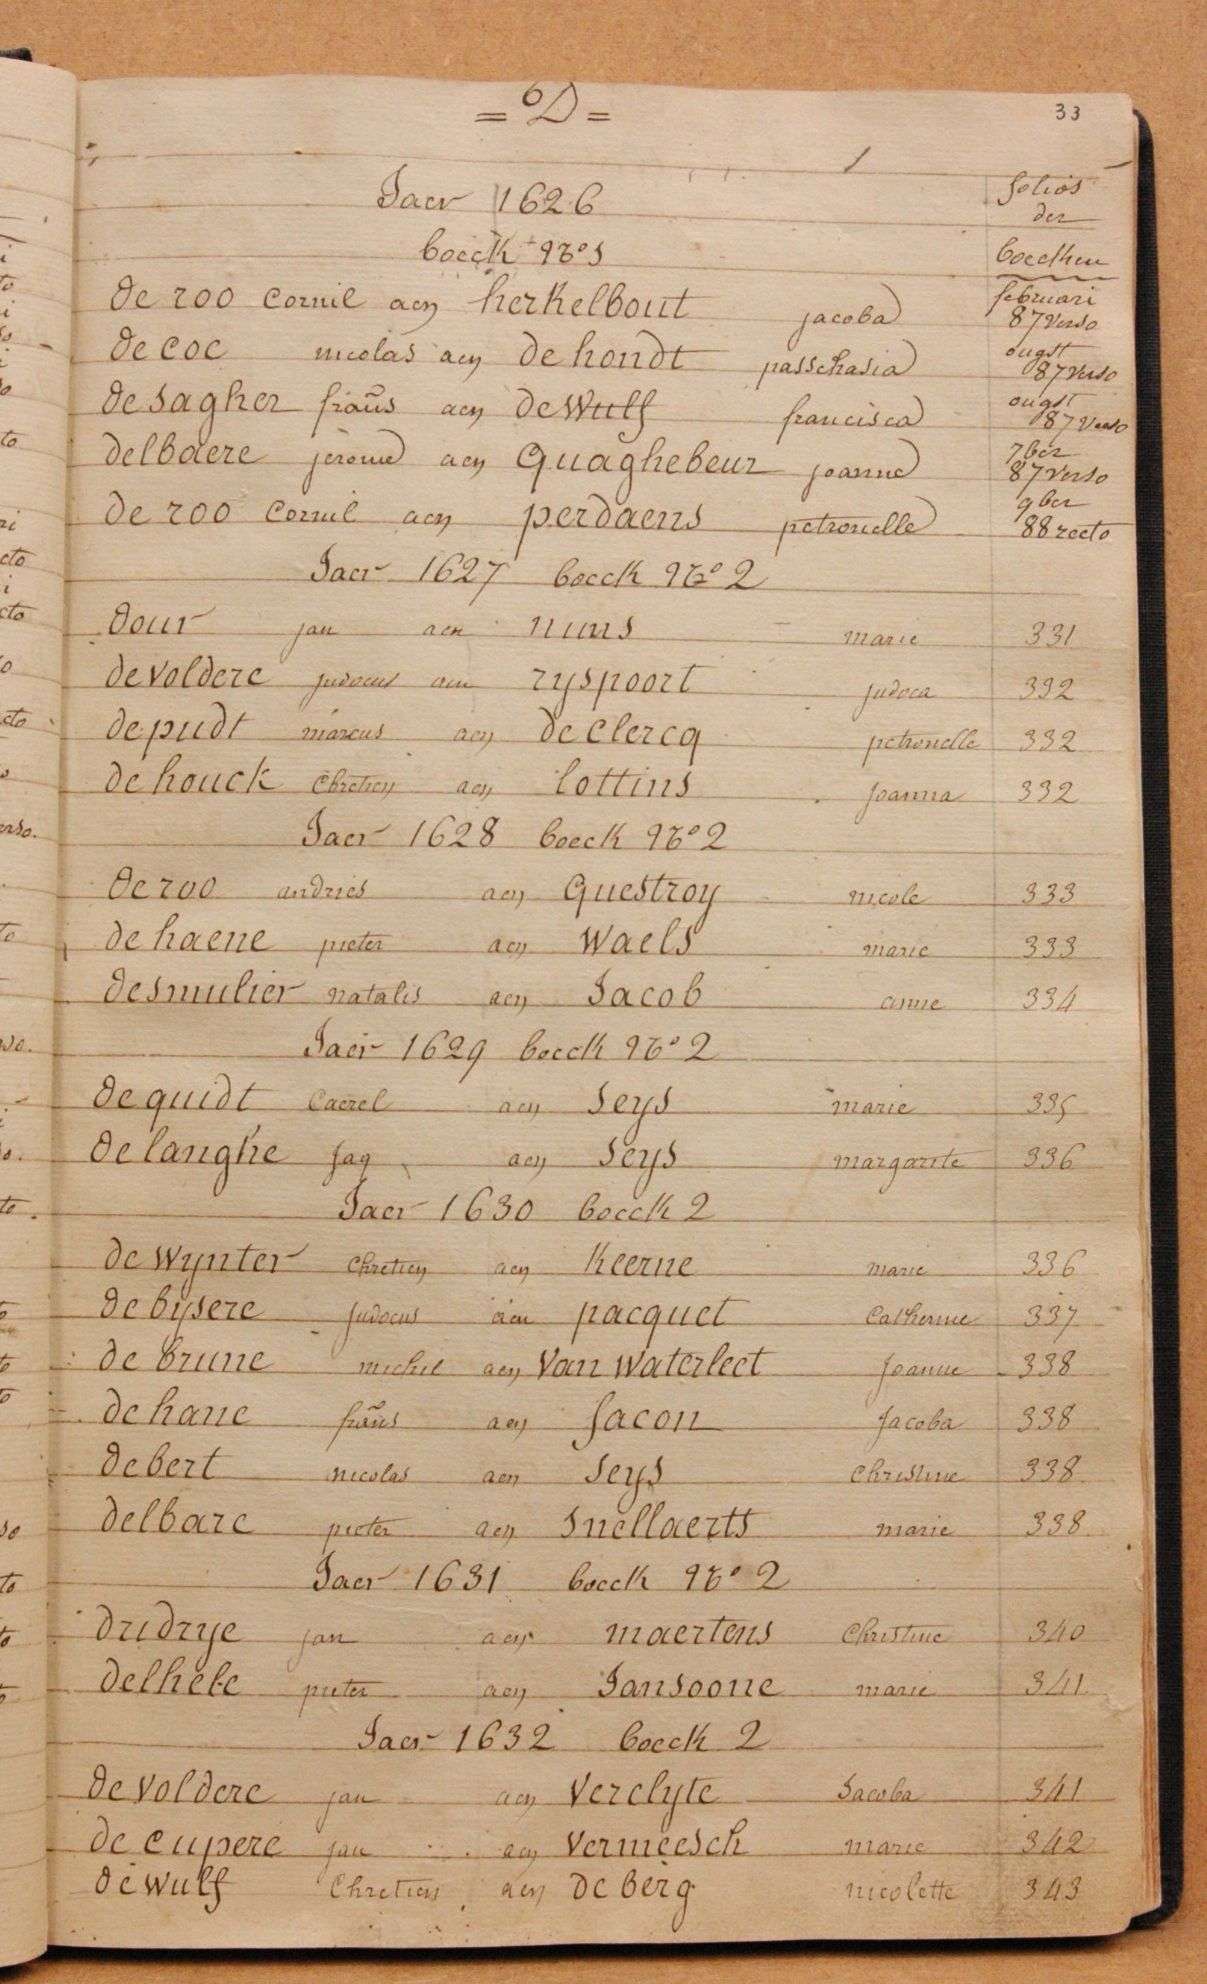 = D =
33
folios
der
boecken
Jaer 1626
boeck No 1
februari
de roo Cornil aen herkelbout jacoba 87 verso
ougst
de coc nicolas aen de hondt passchasia 87 verso
ougst
de sagher frañs aen de Wulf francisca 87 verso
7ber
delbaere jerome aen Quaghebeur joanne 87 verso
9ber
de roo Cornil aen perdaens petronelle 88 recto
Jaer 1627 boeck No 2
dour jan aen nuns marie 331
de voldere judocus aen ryspoort judoca 332
de pudt marcus aen de clercq petronelle 332
de houck Chretien aen lottins joanna 332
Jaer 1628 boeck No 2
de roo andries aen Questroy nicole 333
de haene pieter aen Waels marie 333
desmulier natalis aen Jacob anne 334
Jaer 1629 boeck No 2
de quidt Caerel aen Seys marie 335
de langhe jaq aen Seys margarite 336
Jaer 1630 boeck 2
de wynter Chretien aen Keerne marie 336
de bysere judocus aen pacquet Catherine 337
de brune michil aen Van Waterleet joanne 338
de hane frañs aen facon jacoba 338
de bert nicolas aen Seys Christine 338
delbare pieter aen Snellaerts marie 338
Jaer 1631 boeck No 2
dridrye jan aen maertens Christine 340
delhele pieter aen Jansoone marie 341
Jaer 1632 boeck 2
de voldere jan aen Verclyte Jacoba 341
de cupere jan aen Vermeesch marie 342
de wulf Chretien aen de berg nicolette 343